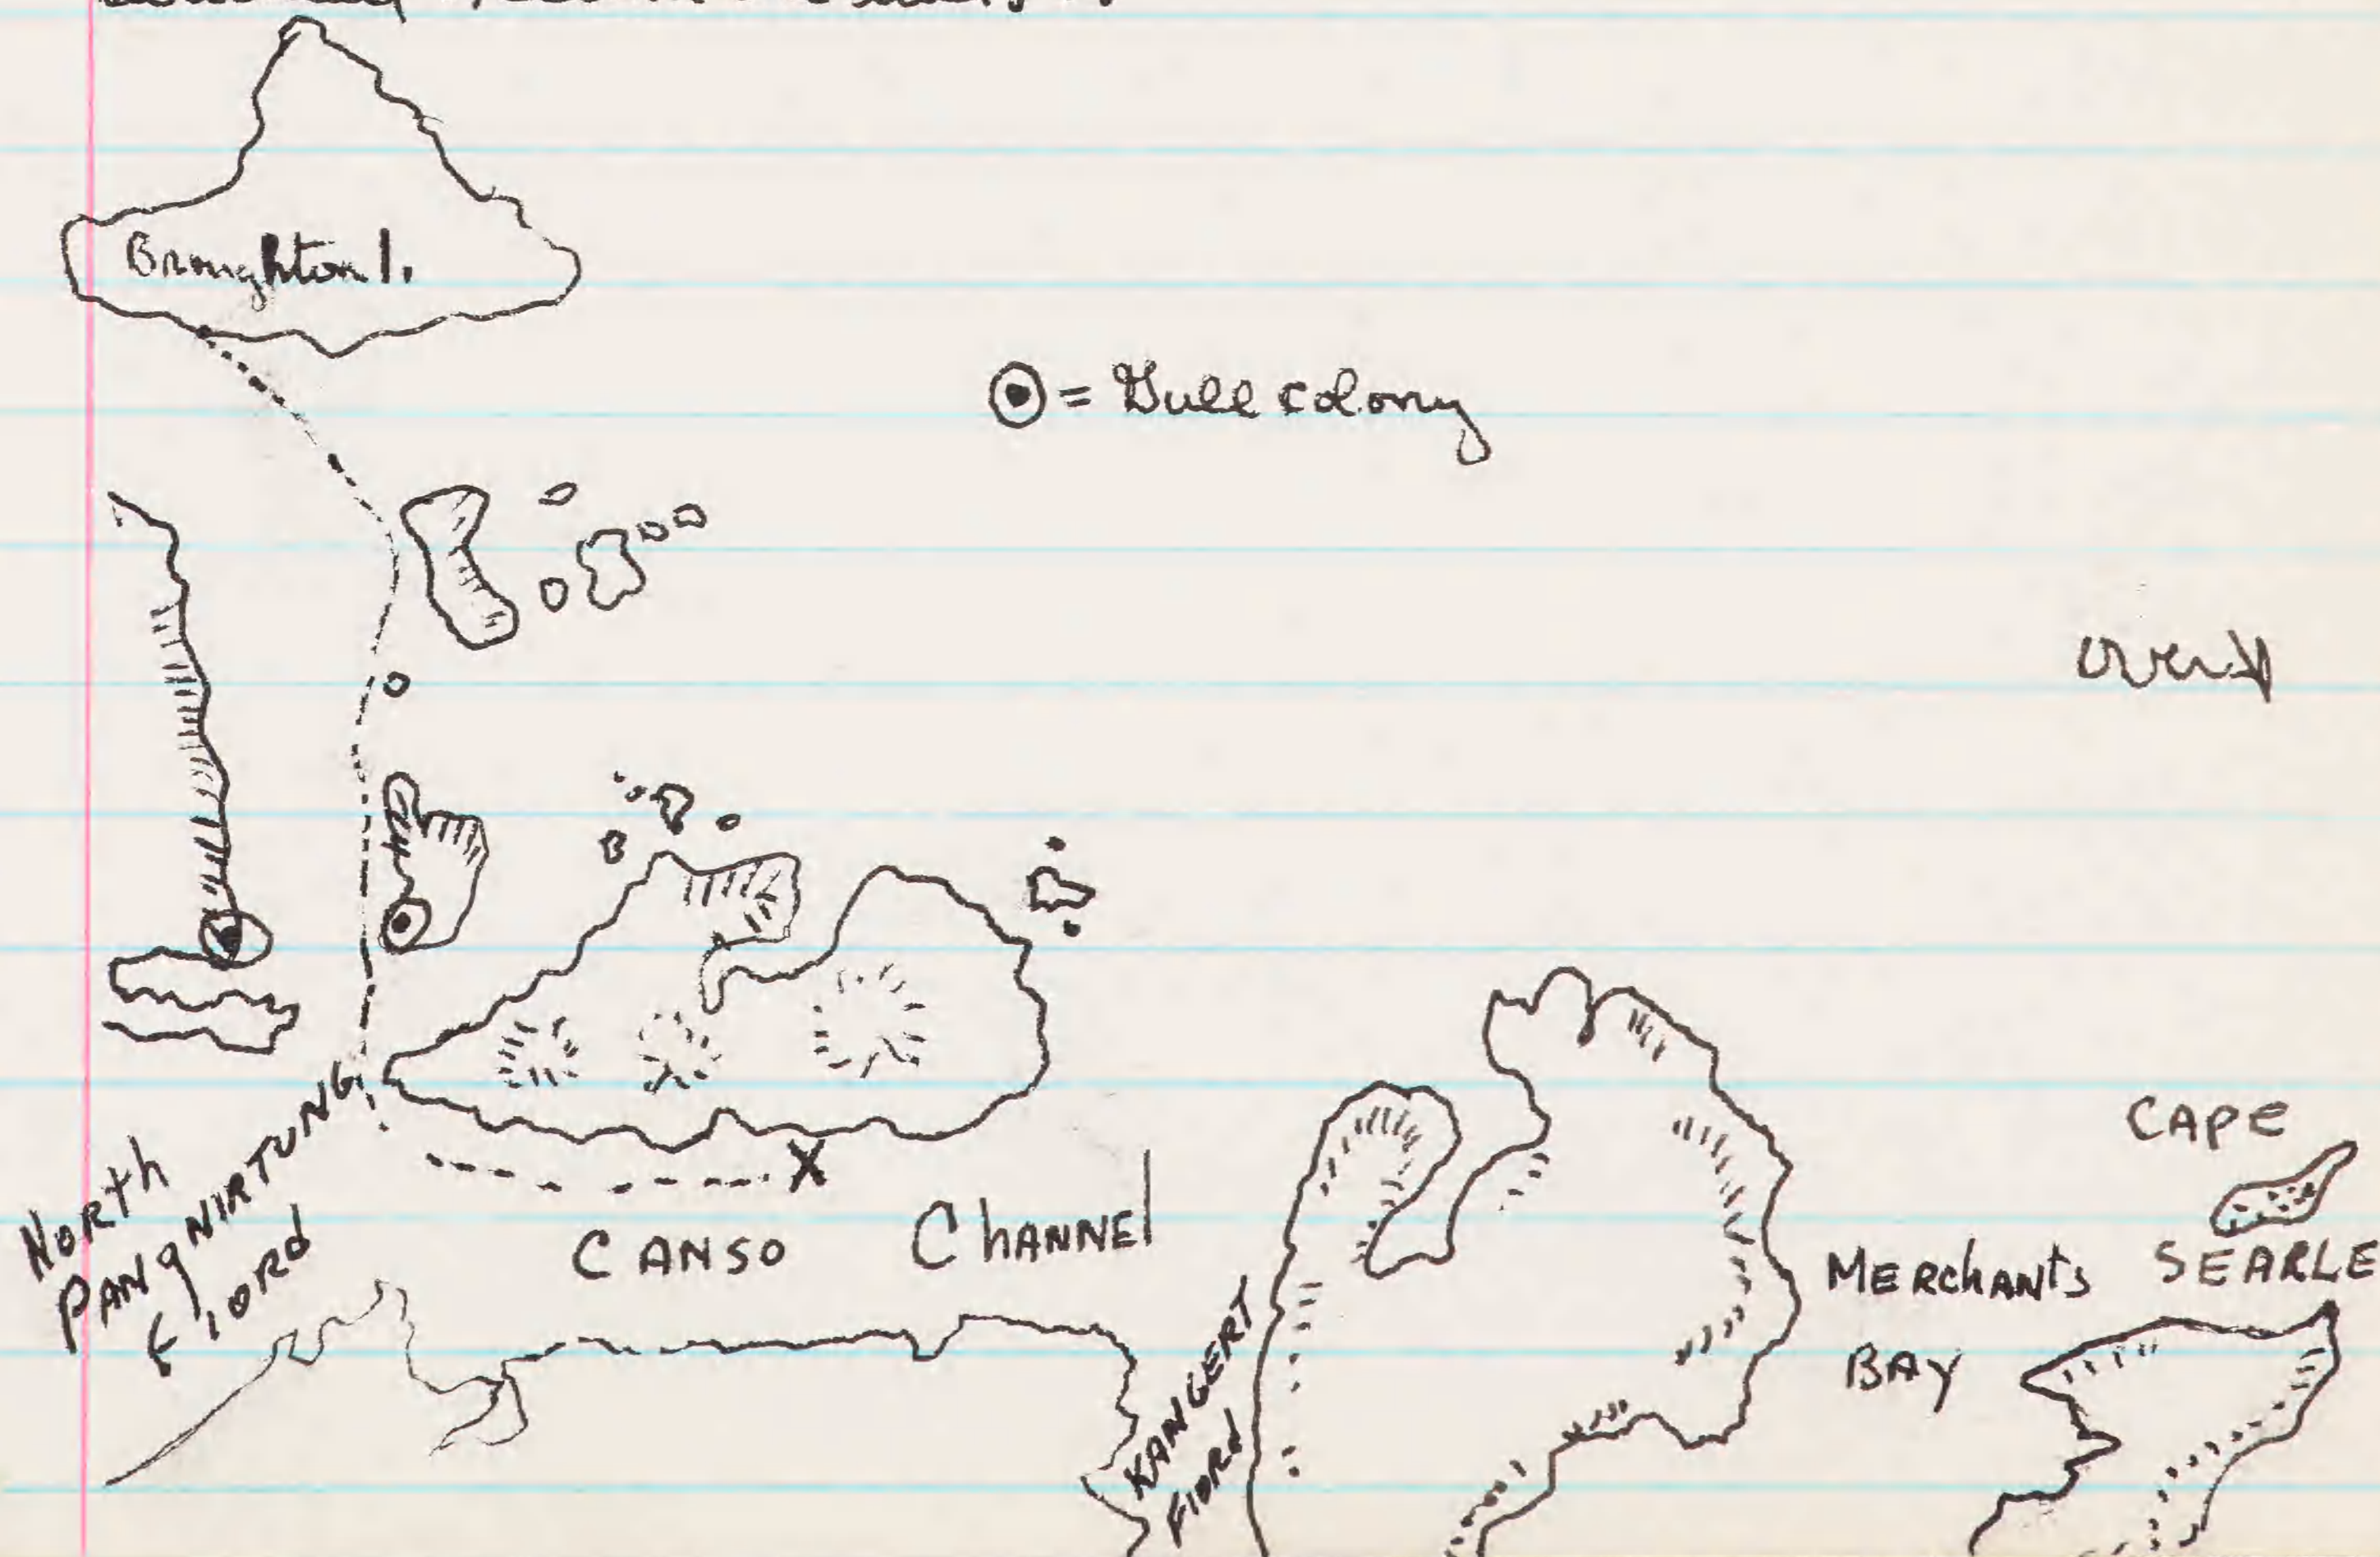 Broughton I.
⊙ = Gull colony
over
X
North
PANGNIRTUNG
FIORD
CANSO CHANNEL
KANGERT
FIORD
MERCHANTS
BAY
CAPE
SEARLE